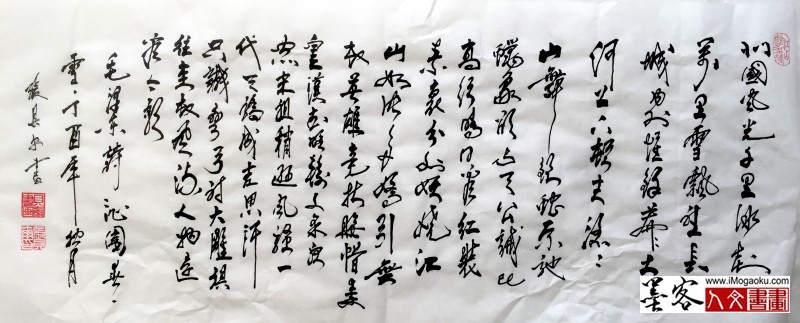 北國風光千里冰封
萬里雪飄望長
城内外惟餘莽々大
河上下頓失滔々
山舞銀蛇原馳
蠟象欲与天公試比
高須晴日看紅裝
素裹分外妖嬈江
山如此多嬌引無
数英雄竞折腰惜秦
皇漢武略輸文采唐
宗宋祖稍遜風騷一
代天驕成吉思汗
只識彎弓射大雕俱
往矣数風流人物還
看今朝
毛澤東詩沁園春
雪丁酉年秋月
www.iMogaoku.com
墨客人文書畫